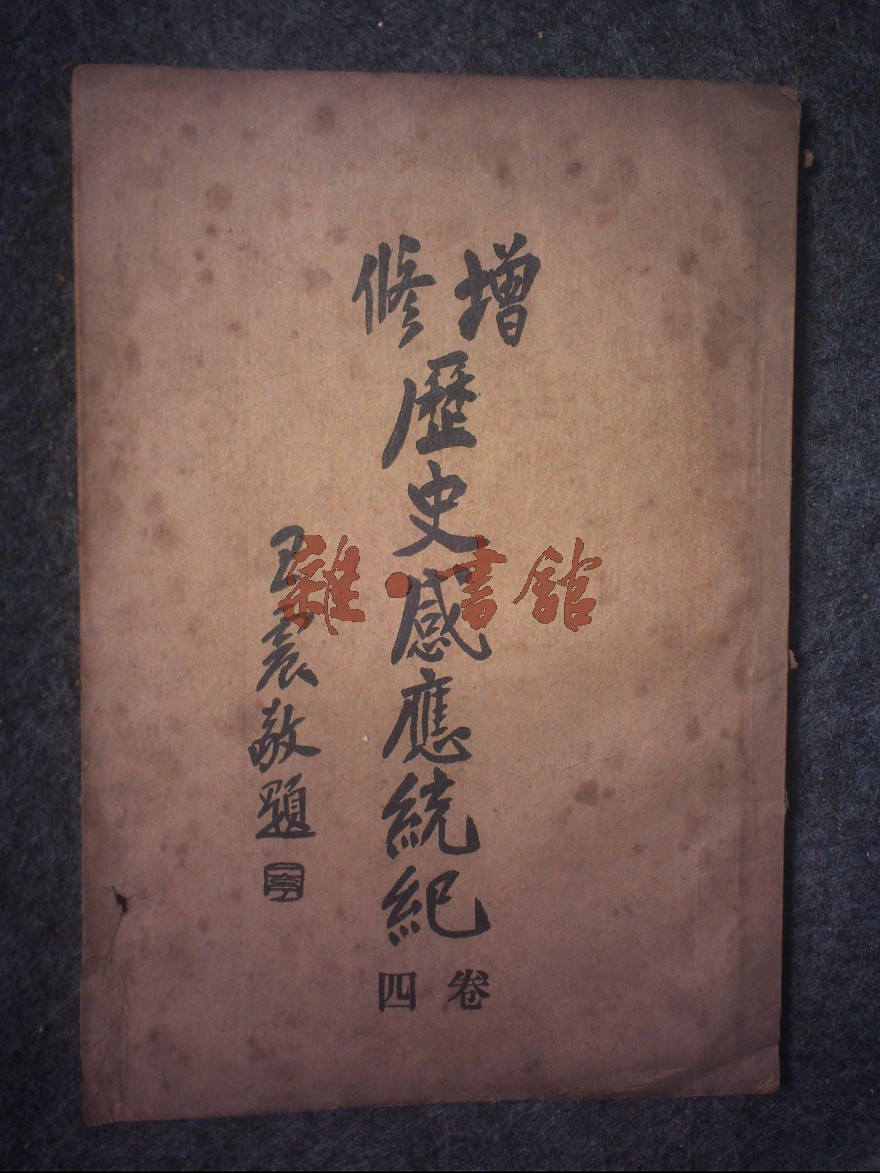 增修
歷史感應統紀
卷四
王震敬題
一亭
雜·書館